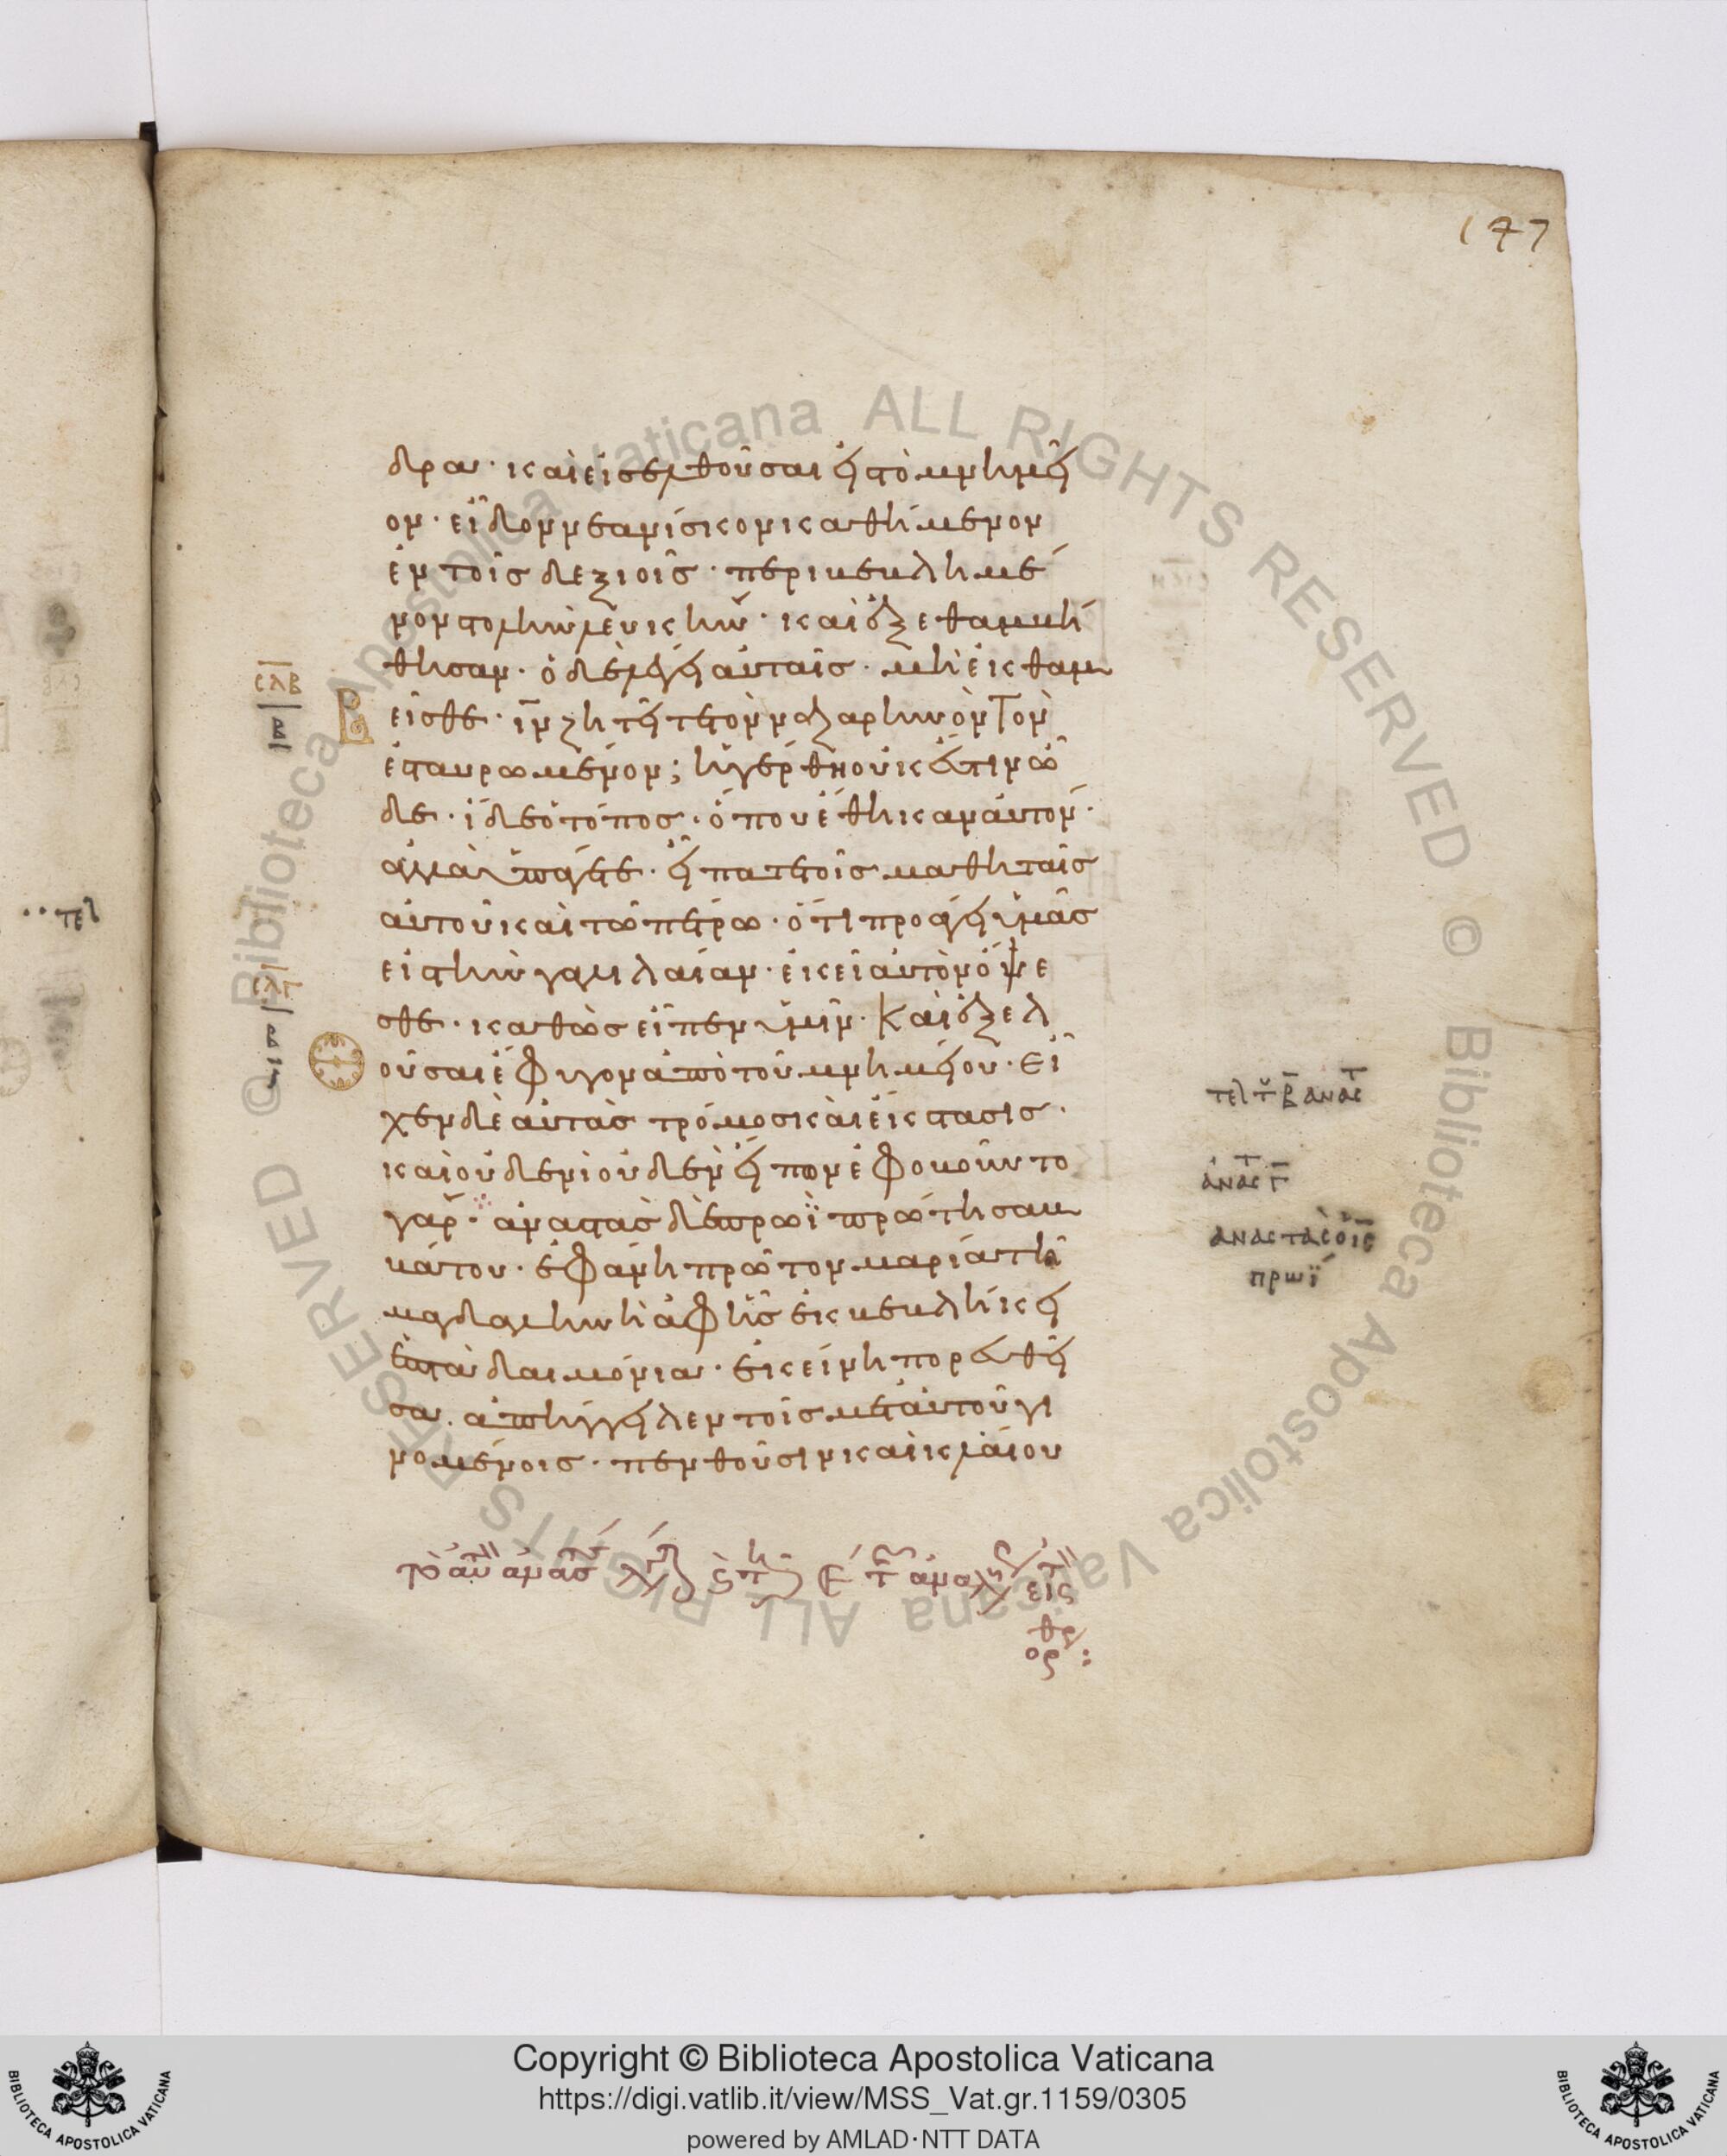 147
δρα· καὶ εἰσελθοῦσαι εἰς τὸ μνημεῖ
ον· εἶδον νεανίσκον καθήμενον
ἐν τοῖς δεξιοῖς· περιβεβλημέ
νον στολὴν λευκὴν· καὶ ἐξεθαμβή
θησαν· ὁ δὲ λέγει αὐταῖς· μὴ ἐκθαμ
βεῖσθε· ιν ζητεῖτε τὸν ναζαρηνὸν τὸν
ἐσταυρωμένον; ἠγέρθη οὐκ ἔστιν ὧ
δε· ἴδε ὁ τόπος· ὅπου ἔθηκαν αὐτόν·
ἀλλὰ ὑπάγετε· εἴπατε τοῖς μαθηταῖς
αὐτοῦ καὶ τῶ πέτρω· ὅτι προάγει ὑμᾶς
εἰς τὴν γαλιλαίαν· ἐκεῖ αὐτὸν ὄψε
σθε· καθὼς εἶπεν ὑμῖν· Καὶ ἐξελ
θοῦσαι ἔφυγον ἀπὸ τοῦ μνημείου· εἶ
χεν δὲ αὐτὰς τρόμος καὶ ἔκστασις·
καὶ οὐδενὶ οὐδὲν εἶπον ἐφοβοῦντο
γάρ· ἀναστὰς δὲ πρωῒ πρώτη σαβ
βάτου· ἐφάνη πρῶτον μαρία τῆ
μαγδαληνῆ ἀφ' ἧς ἐκβεβλήκει
ἑπτὰ δαιμόνια· ἐκείνη πορευθεῖ
σα ἀπήγγειλεν τοῖς μετ' αὐτοῦ γε
νομένοις· πενθοῦσιν καὶ κλαίου
σλβ
β
σλγ
τελ τ β ανας
ἀνας γ
αναστας ὁ ις
πρωῒ
τελ
Copyright © Biblioteca Apostolica Vaticana
https://digi.vatlib.it/view/MSS_Vat.gr.1159/0305
powered by AMLAD·NTT DATA
BIBLIOTECA APOSTOLICA VATICANA
BIBLIOTECA APOSTOLICA VATICANA
© Biblioteca Apostolica Vaticana ALL RIGHTS RESERVED © Biblioteca Apostolica Vaticana ALL RIGHTS RESERVED